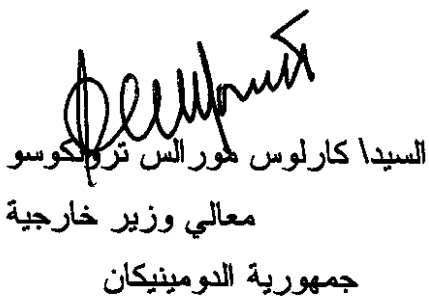 السيدا كارلوس مورالس ترونكوسو
معالي وزير خارجية
جمهورية الدومينيكان